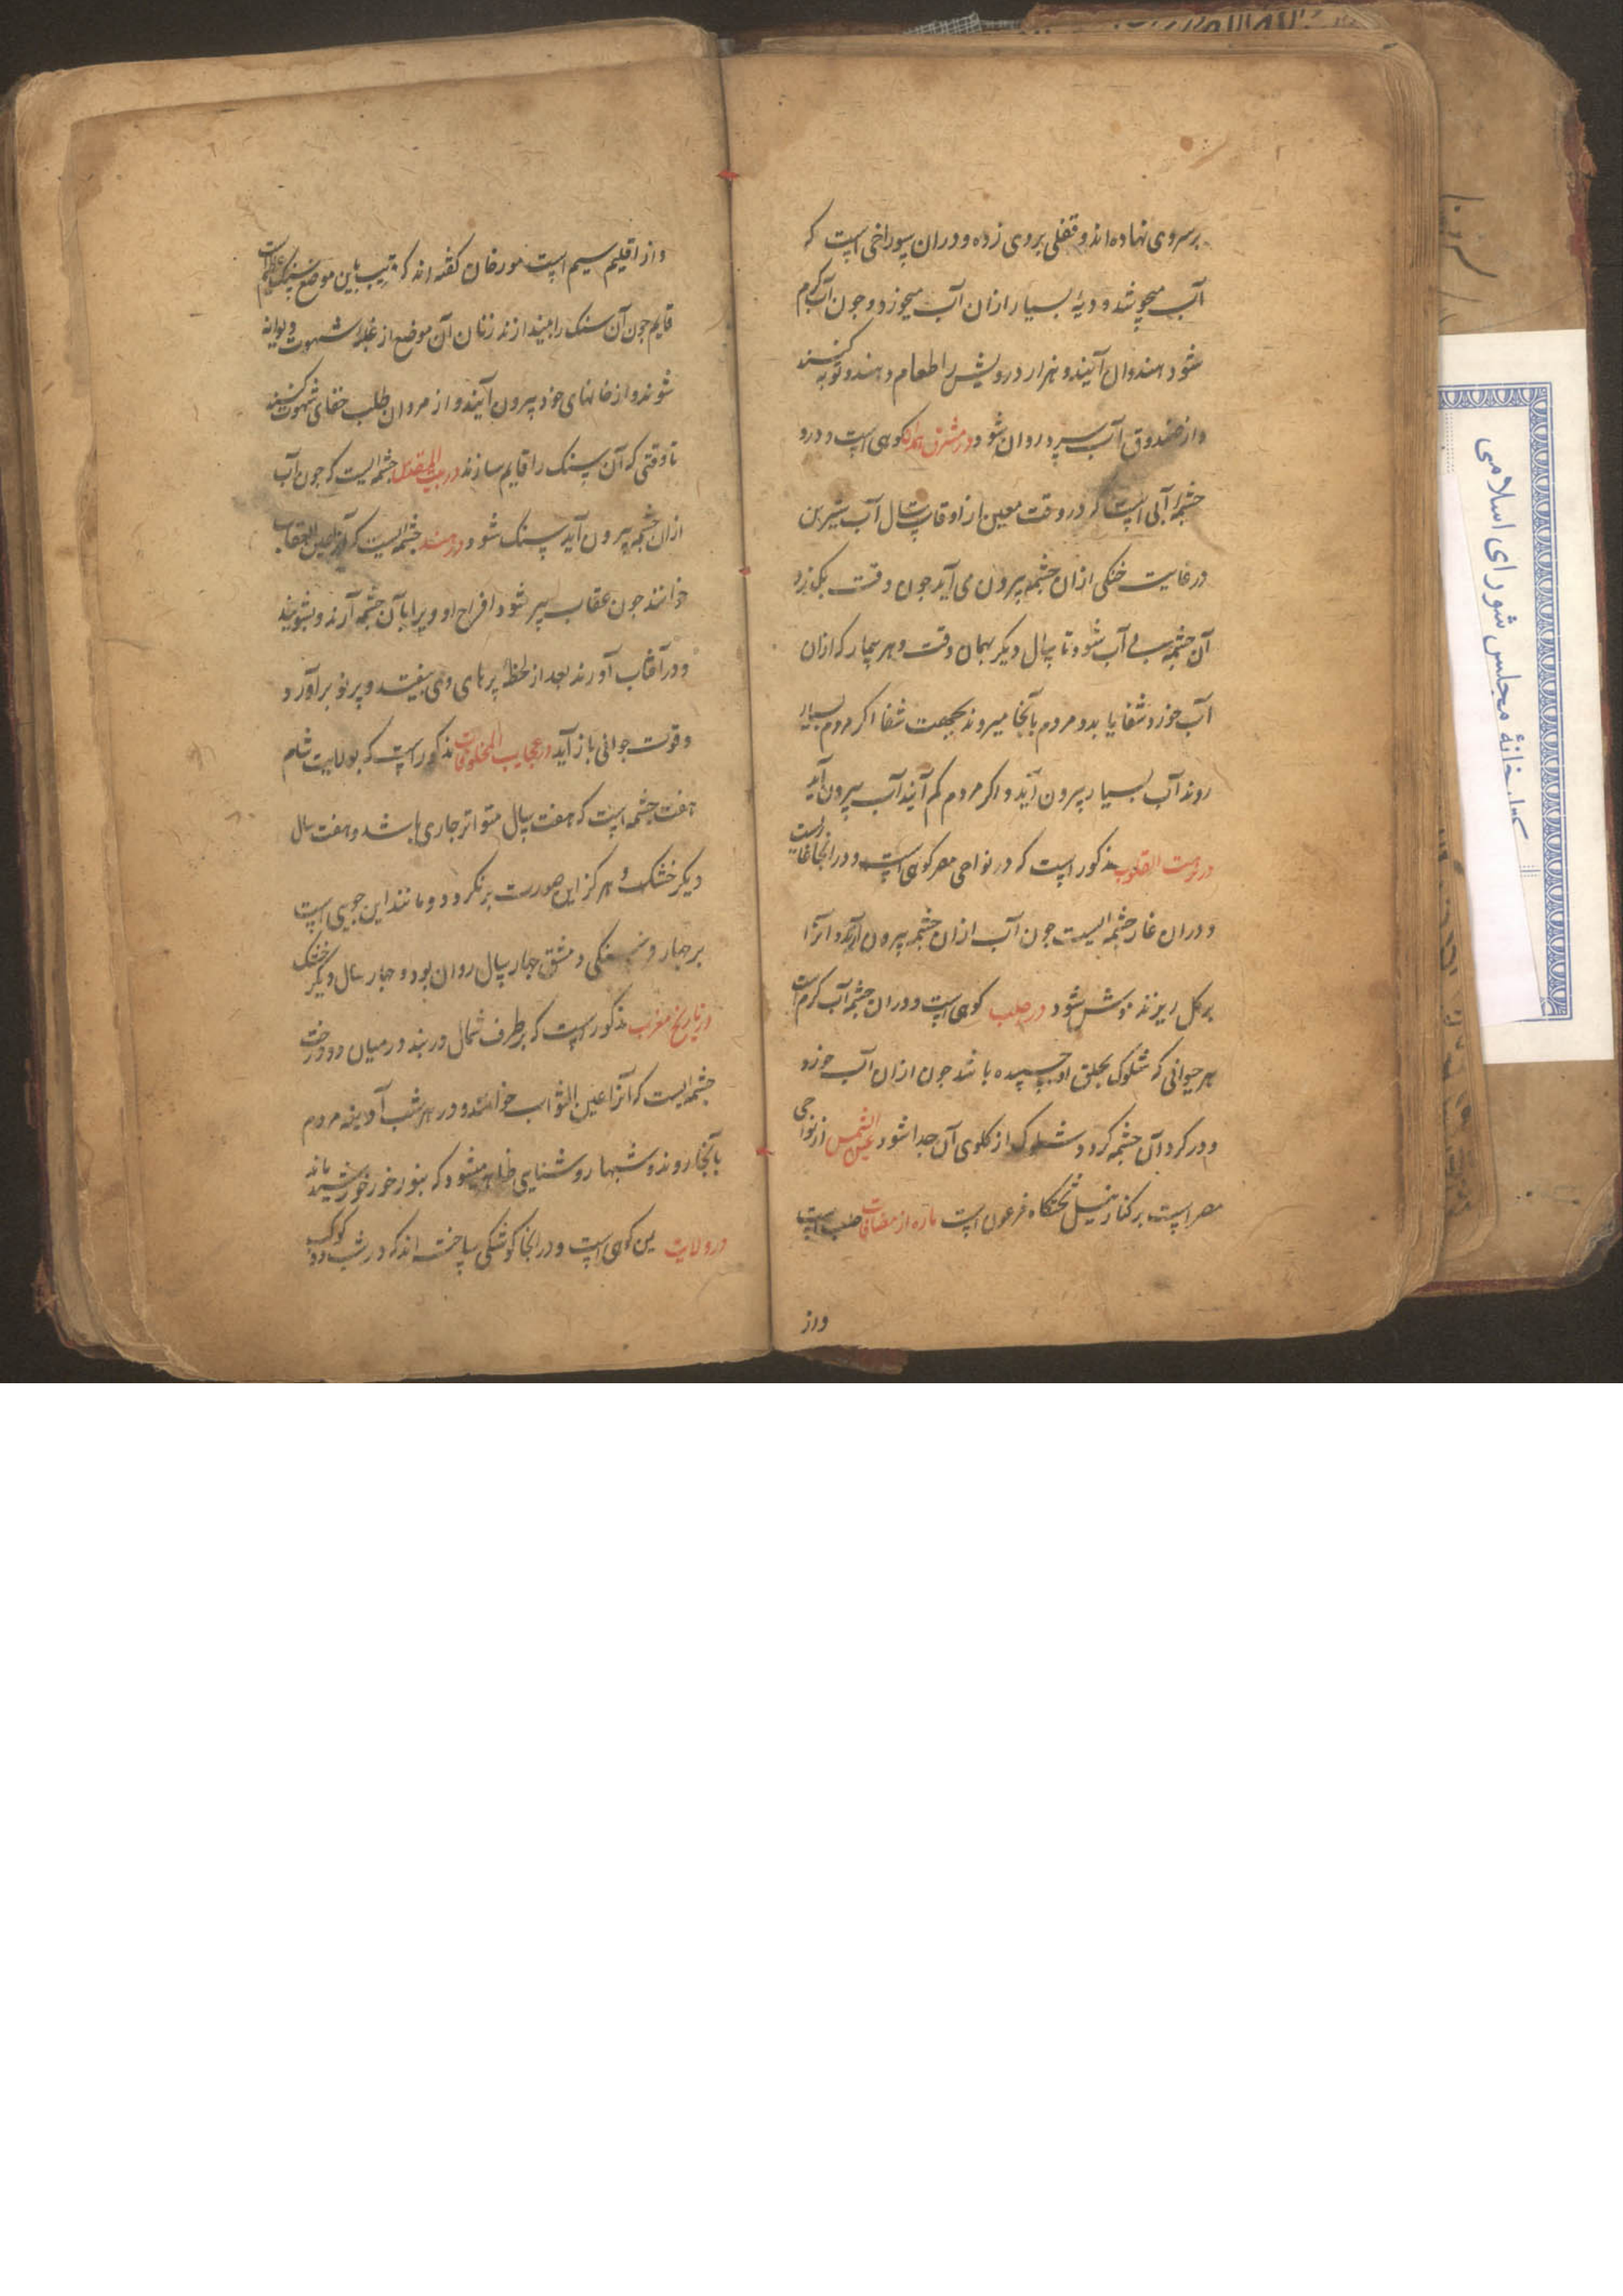 برسروی نهاده‌اند و قفلی بروی زده و دران سوراخی است که
آب میجوشد و دیه بسیار ازان آب میخورد و جون آب کرم
شود هندوان آیند و هزار درویش را طعام دهند و توبه کنند
و از صندوق آب سرد روان شود در مشرق کوهی است و درو
چشمه آبی است که در وقت معین از اوقات سال آب شیرین
در غایت خنکی ازان چشمه بیرون می آید جون وقت بکذرد
آن چشمه بی آب شود تا سال دیکر بهمان وقت و هر بیمار که ازان
آب خورد شفا یابد و مردم بآنجا میروند بجهت شفا اکر مردم بسیار
روند آب بسیار بیرون آید و اکر مردم کم آیند آب بیرون آید
در نزهت القلوب مذکور است که در نواحی مصر کوهی است و در انجا غاریست
و دران غار چشمه ایست جون آب ازان چشمه بیرون آرند و انرا
برکل ریزند موش شود در حلب کوهی است و دران چشمه آب کرم است
هر حیوانی که شلوک بحلق او چسپیده باشد جون ازان آب خورد
و در کرد آن چشمه کردد شلوک از کلوی آن جدا شود عین الشمس از نواحی
مصر است برکنار نیل تختکاه فرعون است ماره از مضافات حلب است
و از
و از اقلیم سیم است مورخان کفته اند که قریب باین موضع سنکی عظیم است
قایم جون آن سنک را بیندازند زنان آن موضع از غلبه شهوت دیوانه
شوند و از خانهای خود بیرون آیند و از مردان طلب شهوت کنند
تا وقتی که آن سنک را قایم سازند در بیت المقدس چشمه ایست که جون آب
ازان چشمه بیرون آید سنک شود در هند چشمه ایست که آنرا عین العقاب
خوانند جون عقاب پیر شود افراخ او ویرا بآن چشمه آرند و بشویند
و در آفتاب آورند بعد از لحظه پرهای وی بیفتد و پر نو برآورد
و قوت جوانی باز آید در عجایب المخلوقات مذکور است که بولایت شام
هفت چشمه است که هفت سال متواتر جاری باشد و هفت سال
دیکر خشک و هرکز این صورت برنکردد و مانند این جویی است
بر چهار فرسنکی دمشق چهار سال روان بود و چهار سال دیکر خشک
در تاریخ مغرب مذکور است که بر طرف شمال دربند در میان دو درخت
چشمه ایست که آنرا عین الثواب خوانند و در هر شب آدینه مردم
بآنجا روند و شبها روشنایی ظاهر میشود که بنور خورشید ماند
در ولایت یمن کوهی است و در انجا کوشکی ساخته اند که در شب دو کوکب
کتابخانهٔ مجلس شورای اسلامی